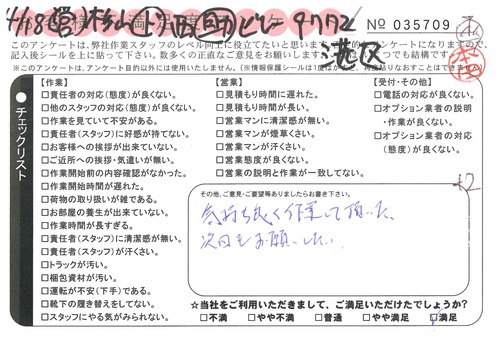 4/18 営 杉山 上 西 助 ピアノ 9772
№ 035709
港区
このアンケートは、弊社作業スタッフのレベル向上に役立てたいと思います。
記入後シールを上に貼って下さい。数多くの正直なご意見をお願いします。
※このアンケートは、アンケート目的以外には使用いたしません。
チェックリスト
【作業】
□責任者の対応(態度)が良くない。
□他のスタッフの対応(態度)が良くない。
□作業を見ていて不安がある。
□責任者(スタッフ)に好感が持てない。
□お客様への挨拶が出来ていない。
□ご近所への挨拶・気遣いが無い。
□作業開始前の内容確認がなかった。
□作業開始時間が遅れた。
□荷物の取り扱いが雑である。
□お部屋の養生が出来ていない。
□作業時間が長すぎる。
□責任者(スタッフ)に清潔感が無い。
□責任者(スタッフ)が汗くさい。
□トラックが汚い。
□梱包資材が汚い。
□運転が不安(下手)である。
□靴下の履き替えをしてない。
□スタッフにやる気がみられない。
【営業】
□見積もり時間に遅れた。
□見積もり時間が長い。
□営業マンに清潔感が無い。
□営業マンが煙草くさい。
□営業マンが汗くさい。
□営業態度が良くない。
□営業の説明と作業が一致してない。
【受付・その他】
□電話の対応が良くない。
□オプション業者の説明
・作業が良くない。
□オプション業者の対応
(態度)が良くない。
+2
その他、ご意見・ご要望等ありましたらお書き下さい。
気持ち良く作業して頂いた、
次回もお願いしたい。
☆当社をご利用いただきまして、ご満足いただけたでしょうか?
□不満 □やや不満 □普通 □やや満足 □満足